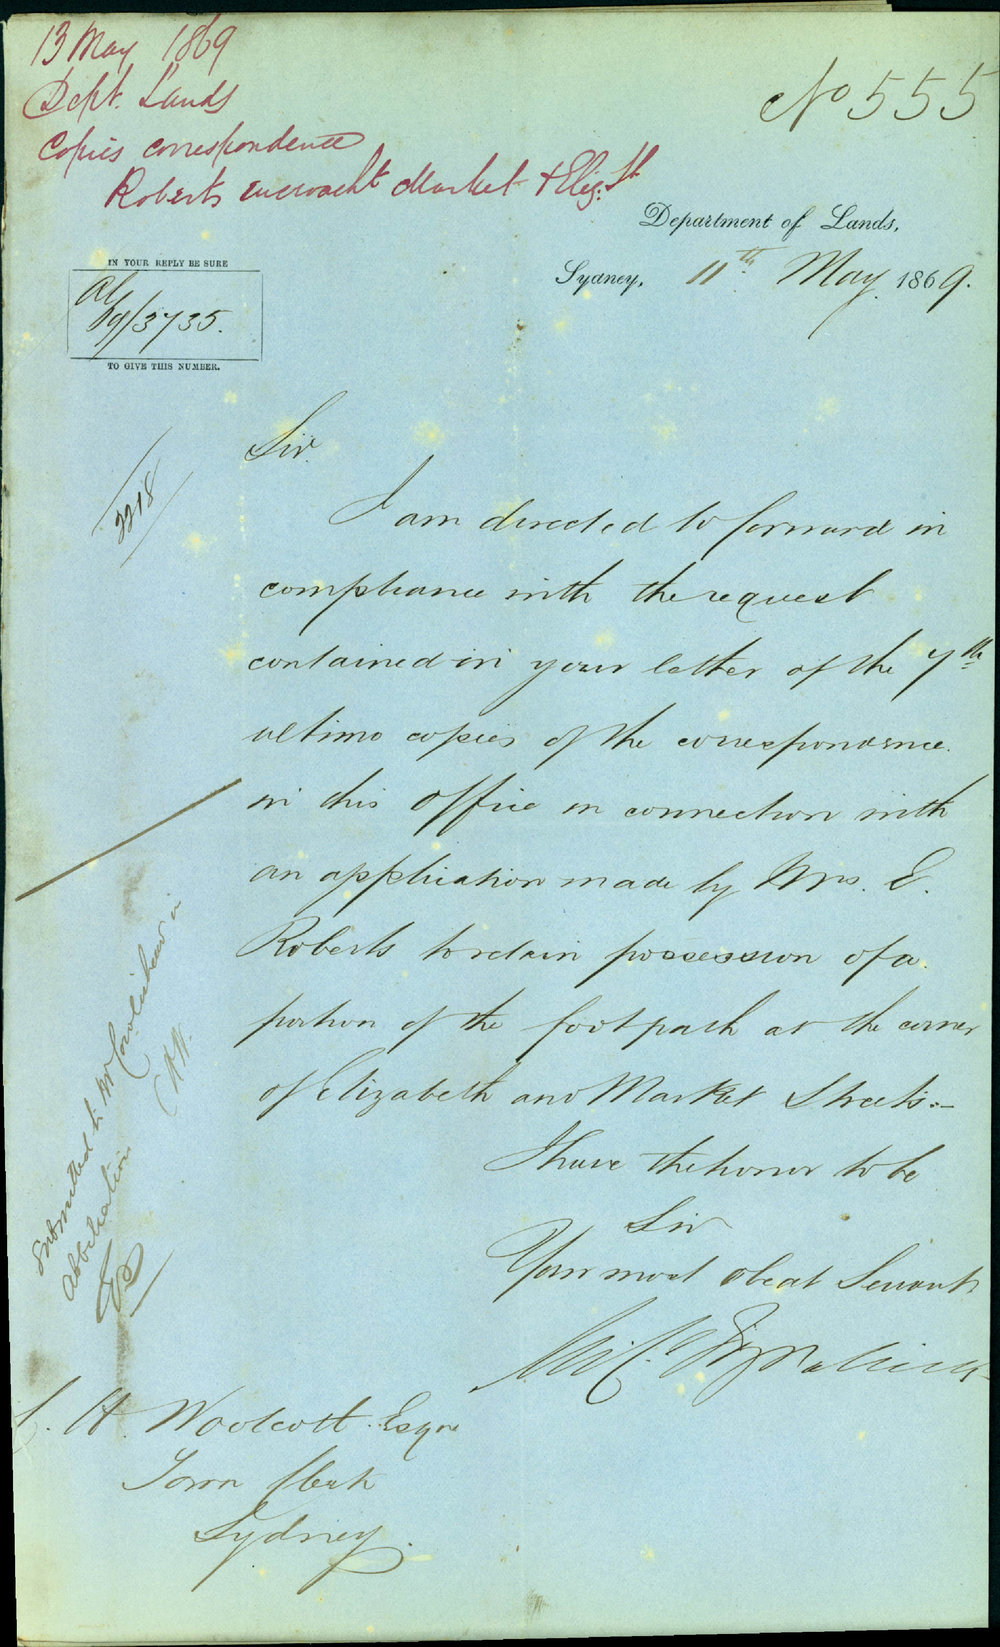 13 May 1869
Dept. Lands
Copies correspondence
Roberts encroacht Market & Eliz: St
No 555
Department of Lands,
Sydney, 11th May 1869.
IN YOUR REPLY BE SURE
69/3735.
TO GIVE THIS NUMBER.
Sir
I am directed to forward in
compliance with the request
contained in your letter of the 7th
ultimo copies of the correspondence
in this office in connection with
an application made by Mrs. E.
Roberts to retain possession of a
portion of the footpath at the corner
of Elizabeth and Market Streets:-
I have the honor to be
Sir
Your most obedt Servant
C. H. Woolcott Esqre
Town Clerk
Sydney.
Submitted to